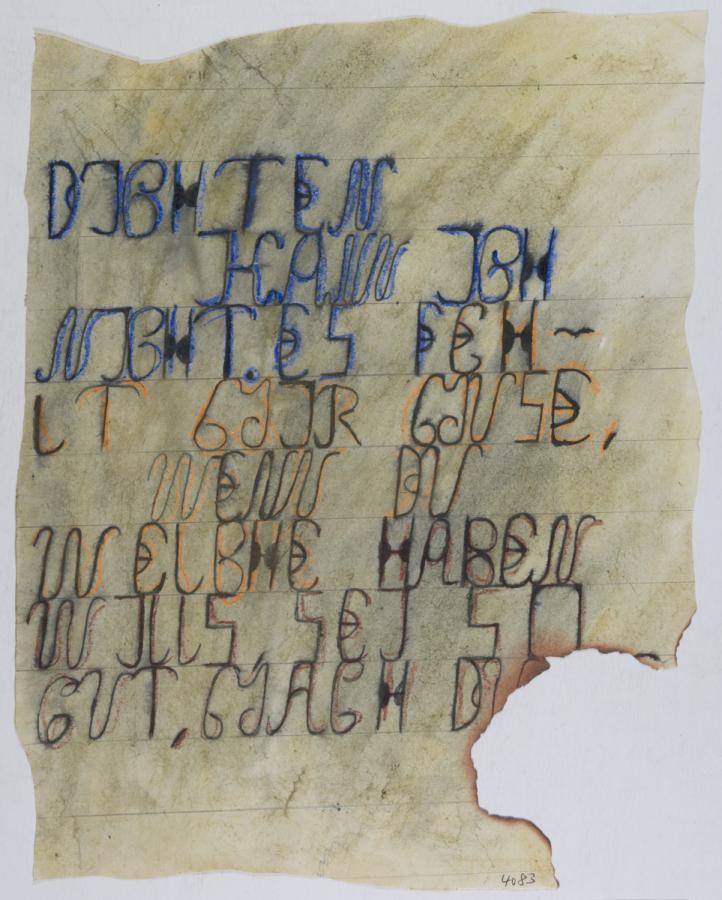 DICHTEN
KANN ICH
NICHT. ES FEH-
LT MIR MUSE,
WENN DU
WELCHE HABEN
WILLS, SEI SO
GUT, MACH
4083